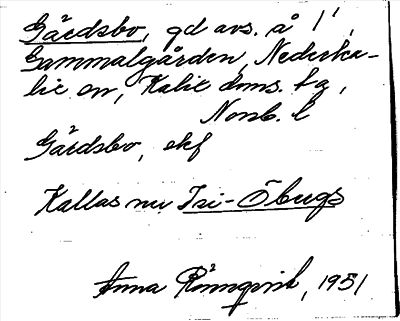 Gårdsbo, gd avs. å 1¹,
Gammalgården, Nederka-
lix sn, Kalix doms. tg,
Norrb. l
Gårdsbo, ekf
Kallas nu Isi-Öbergs
Anna Rönnqvist, 1951